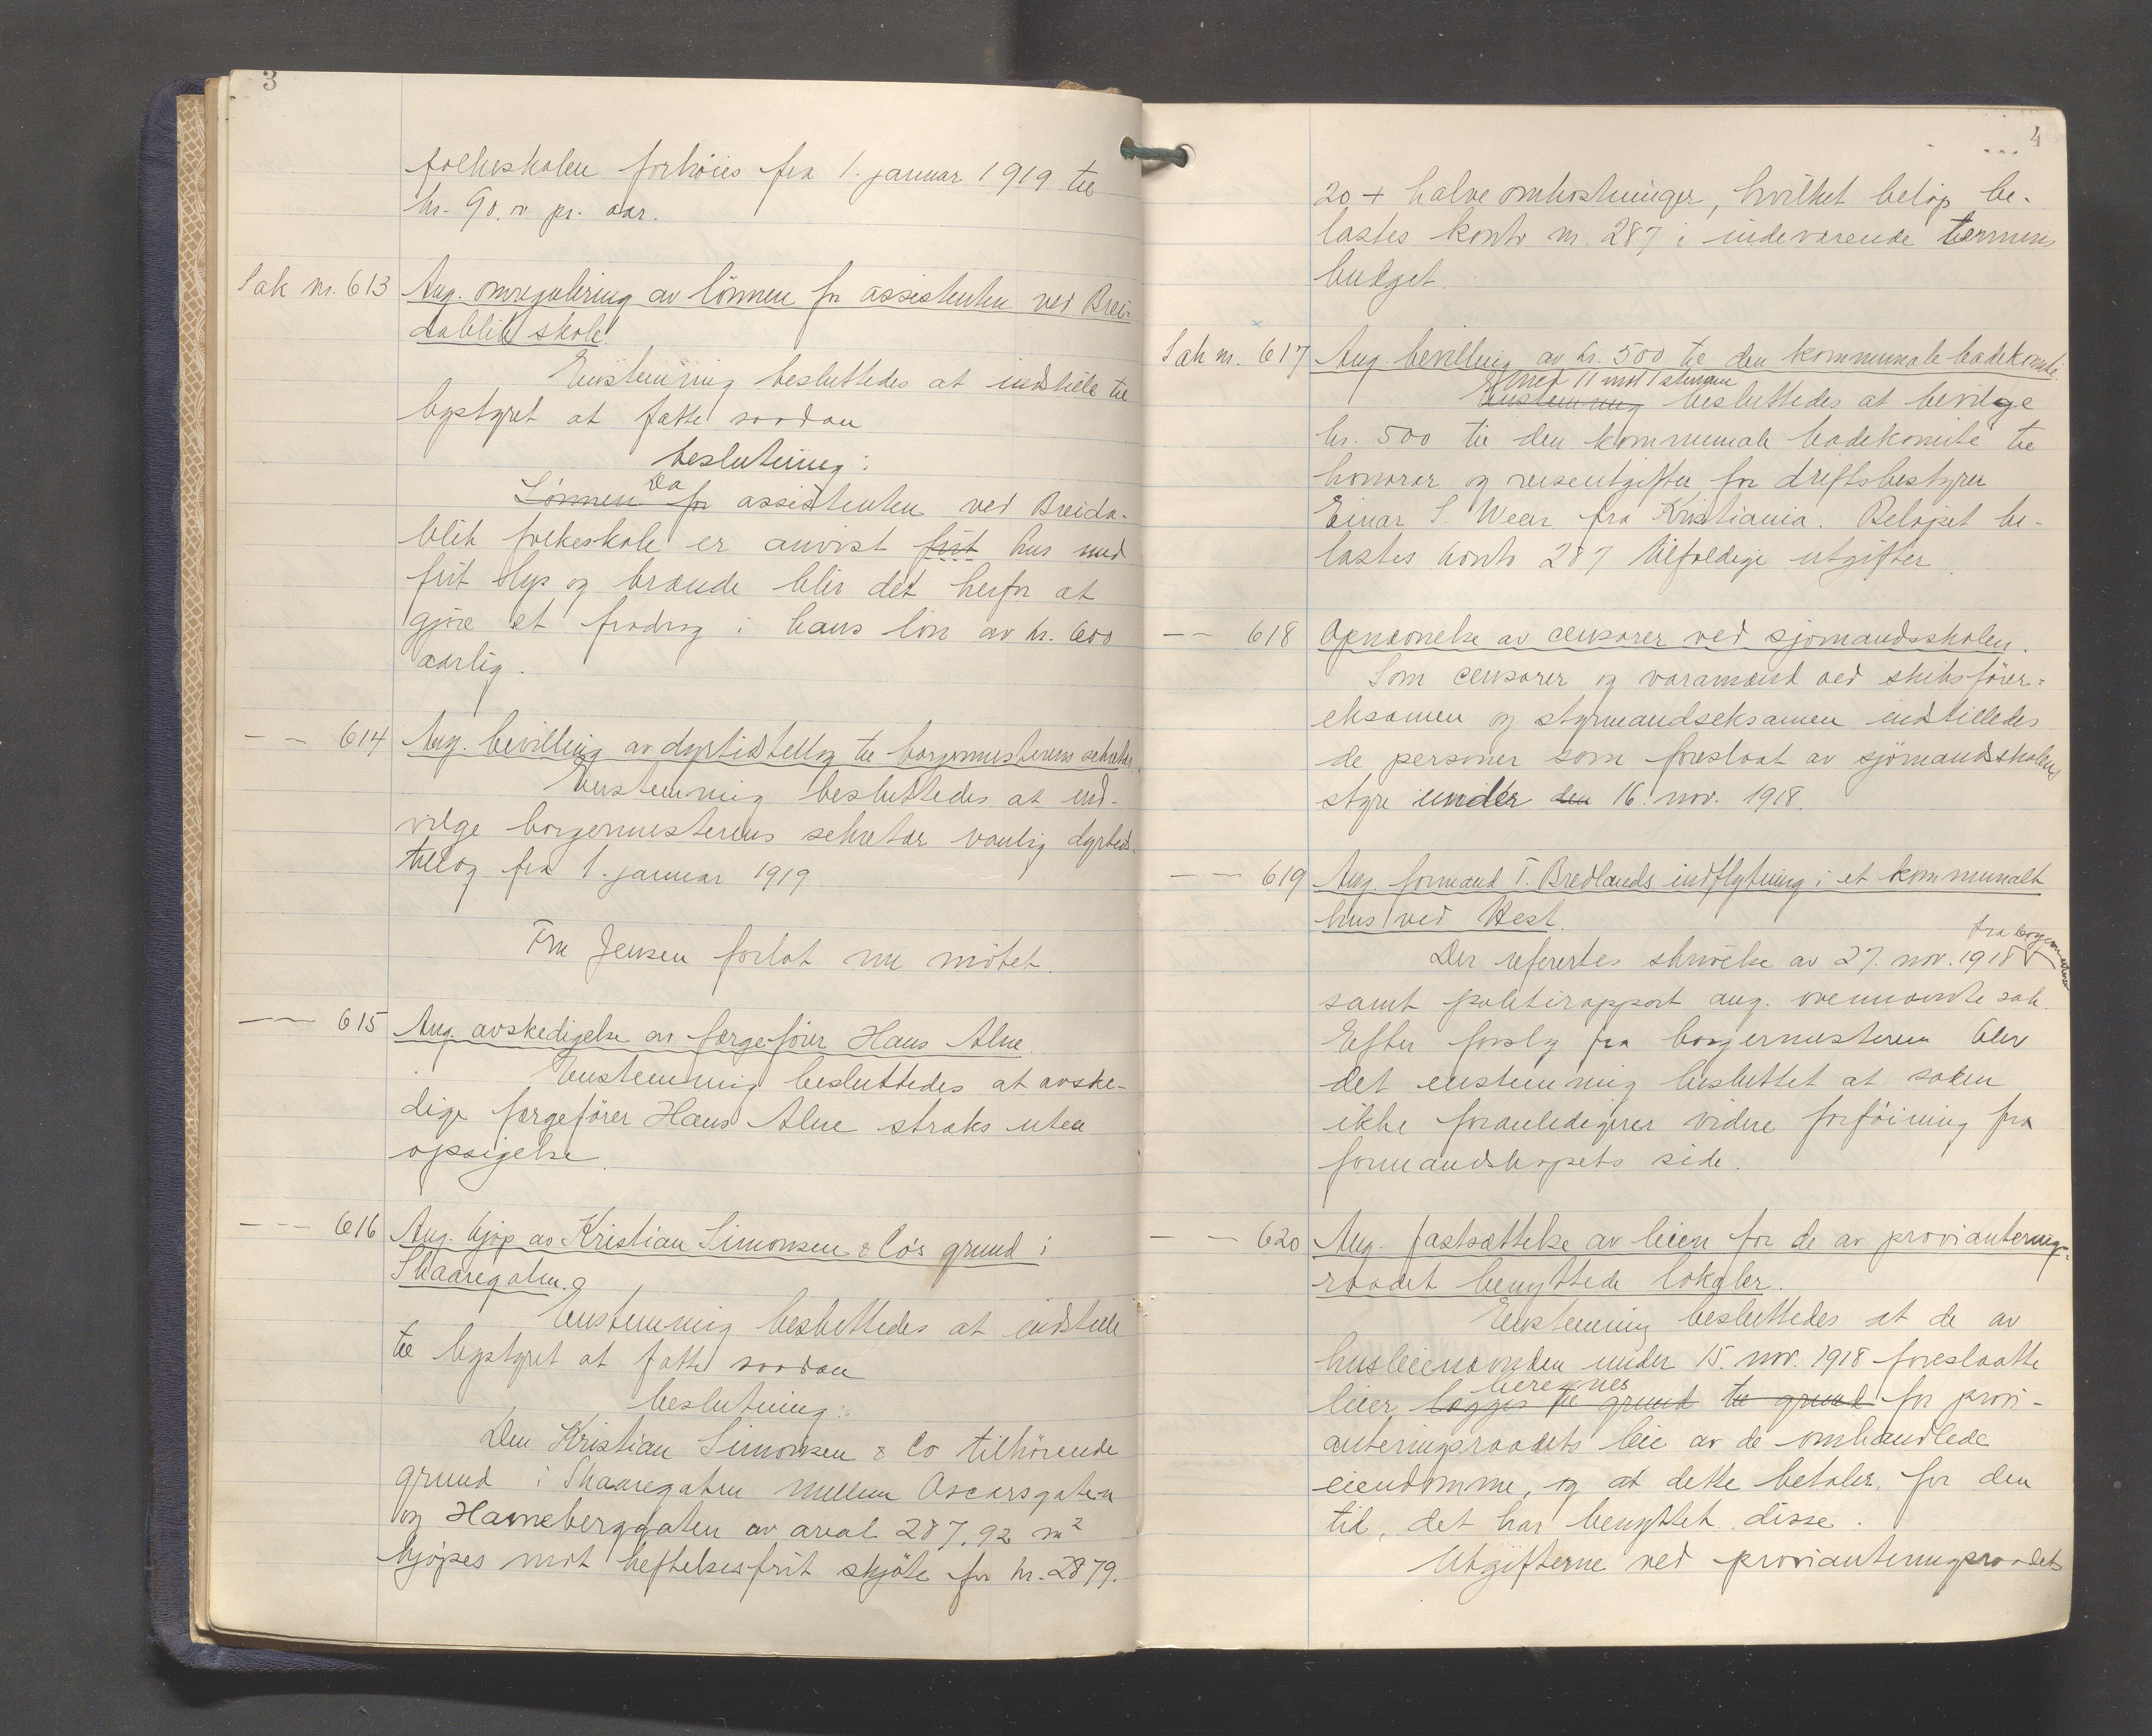 3
folkeskolen forhöies fra 1. januar 1919 til
kr. 90.00 pr. aar.
Sak nr. 613 Ang. omregulering av lönnen for assistenten ved Brei-
dablik skole.
Enstemmig besluttedes at indstille til
bystyret at fatte saadan
beslutning:
Da
Lönnen for assistenten ved Breida-
blik folkeskole er anvist frit hus med
frit lys og brænde blir det herfor at
gjöre et fradrag i hans lön av kr. 600
aarlig.
— — 614 Ang. bevilling av dyrtidstillæg til borgermesterens sekretær.
Enstemmig besluttedes at ind-
vilge borgermesterens sekretær vanlig dyrtids-
tillæg fra 1. januar 1919
Fru Jensen forlot nu mötet.
— — 615 Ang. avskedigelse av færgeförer Hans Alne.
Enstemmig besluttedes at avske-
dige færgeförer Hans Alne straks uten
opsigelse.
— — 616 Ang. kjöp av Kristian Simonsen & Co's grund i
Skaaregaten.
Enstemmig besluttedes at indstille
til bystyret at fatte saadan
beslutning:
Den Kristian Simonsen & Co tilhörende
grund i Skaaregaten mellem Oscarsgaten
og Havneberggaten av areal 287,92 m²
kjöpes mot heftelsesfrit skjöte for kr. 2879.
4
20 + halve omkostninger, hvilket belöp be-
lastes konto nr. 287 i indeværende termins
budget.
Sak nr. 617 Ang. bevilling av kr. 500 til den kommunale badekomite.
med 11 mot 1 stemme
Enstemmig besluttedes at bevilge
kr. 500 til den kommunale badekomite til
honorar og reiseutgifter for driftsbestyrer
Einar S. Weer fra Kristiania. Belöpet be-
lastes konto 287 tilfældige utgifter.
— — 618 Opnævnelse av censorer ved sjömandsskolen.
Som censorer og varamænd ved skibsförer-
eksamen og styrmandseksamen indstilledes
de personer som foreslaat av sjömandsskolens
styre under den 16. nov. 1918.
— — 619 Ang. formand T. Bredlands indflytning i et kommunalt
hus ved Hest.
fra borgermesteren
Der refereres skrivelse av 27. nov. 1918
samt politirapport ang. ovennævnte sak.
Efter forslag fra borgermesteren blev
det enstemmig besluttet at saken
ikke foranlediger videre forföining fra
formandskapets side.
— — 620 Ang. fastsættelse av leien for de av provianterings-
raadet benyttede lokaler.
Enstemmig besluttedes at de av
husleienævnden under 15. nov. 1918 foreslaatte
beregnes
leier lægges til grund til grund for provi-
anteringsraadets leie av de omhandlede
eiendomme, og at dette betaler for den
tid, det har benyttet disse.
Utgifterne ved provianteringsraadets